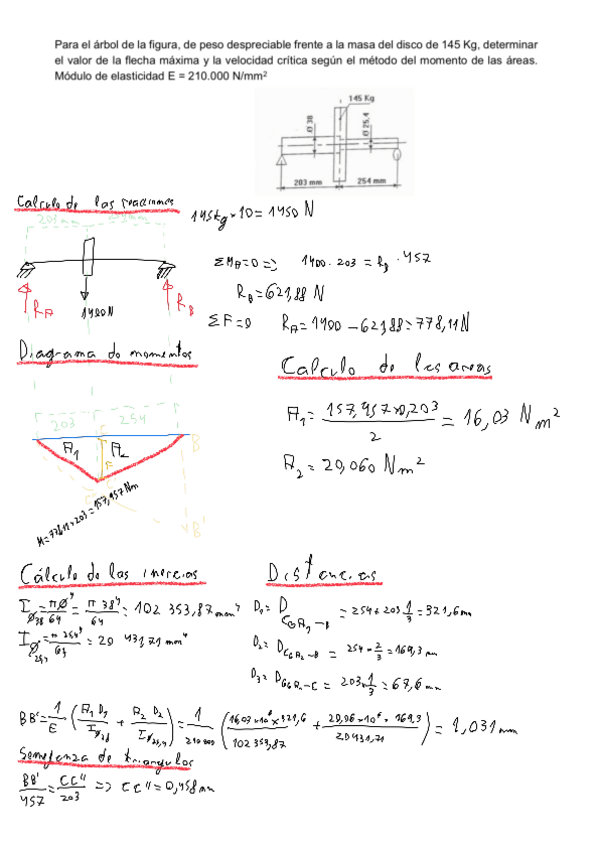 Para el árbol de la figura, de peso despreciable frente a la masa del disco de 145 Kg, determinar
el valor de la flecha máxima y la velocidad crítica según el método del momento de las áreas.
Módulo de elasticidad E = 210.000 N/mm²
145 Kg
Ø 38
Ø 25,4
203 mm
254 mm
Calculo de las reacciones
145kg*10=1450 N
ΣMA=0=> 1400·203=RB·457
RB=621,88 N
ΣF=0 RA=1400-621,88=778,11N
RA
1400N
RB
Diagrama de momentos
Calculo de las areas
203
254
A1
A2
B
B'
M=778,11*203=157,957Nm
A1=157,957*0,203/2=16,03 Nm²
A2=20,060 Nm²
Cálculo de las inercias
Distancias
IØ38=πØ⁴/64=π38⁴/64=102 353,87mm⁴
IØ25,4=π254⁴/64=20 431,71mm⁴
D1=D CGA1-B=254+203·1/3=321,6mm
D2=DCGA2-B=254·2/3=169,3mm
D3=DCGA1-C=203·1/3=67,6mm
BB'=1/E(A1D1/IØ38+A2D2/IØ25,4)=1/210000(16,03*10⁶*321,6/102353,87+20,06*10⁶·169,3/20431,71)=1,031mm
Semejanza de triangulos
BB'/457=CC''/203=>CC''=0,458mm